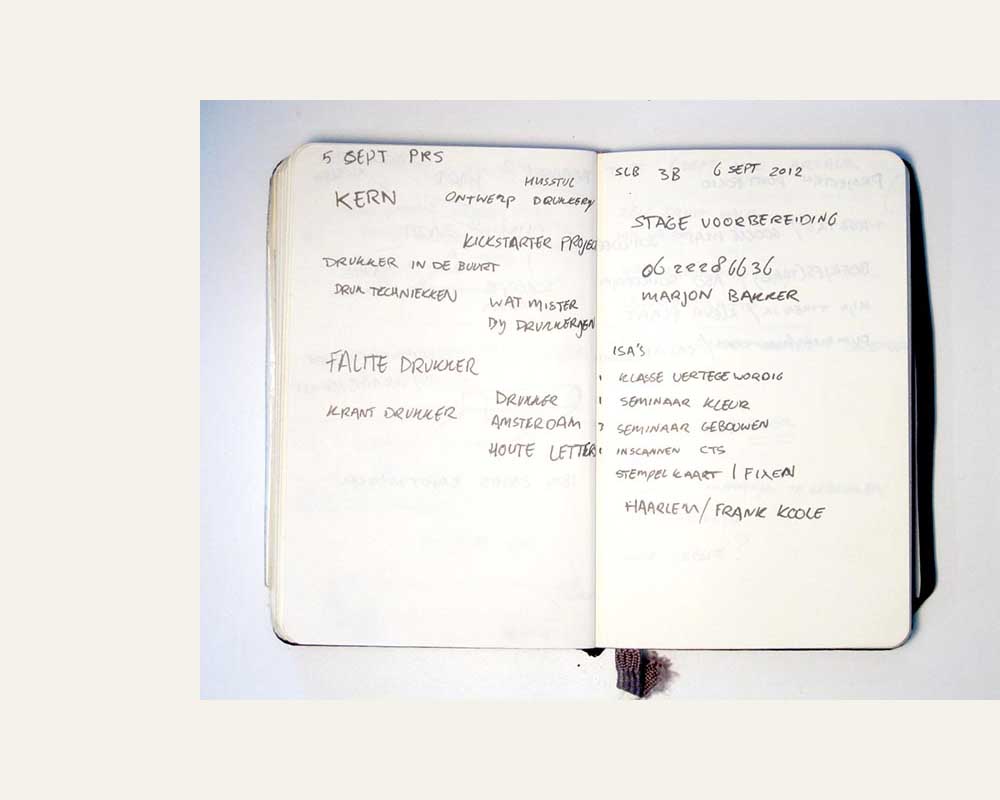 5 SEPT PRS
KERN
HUSSTYL
ONTWERP DRUKKERY
KICKSTARTER PROJEC
DRUKKER IN DE BUURT
DRUK TECHNIEKKEN
WAT MISTER
BY DRUKKERYEN
DRUKKER
KRANT DRUKKER
AMSTERDAM
HOUTE LETTERS
SLB 3B 6 SEPT 2012
STAGE VOORBEREIDING
06 22286636
MARJON BAKKER
ISA'S
KLASSE VERTEGEWORDIG
SEMINAAR KLEUR
SEMINAAR GEBOUWEN
INSCANNEN CTS
STEMPELKAART / FIXEN
HAARLEM/ FRANK KOOLE